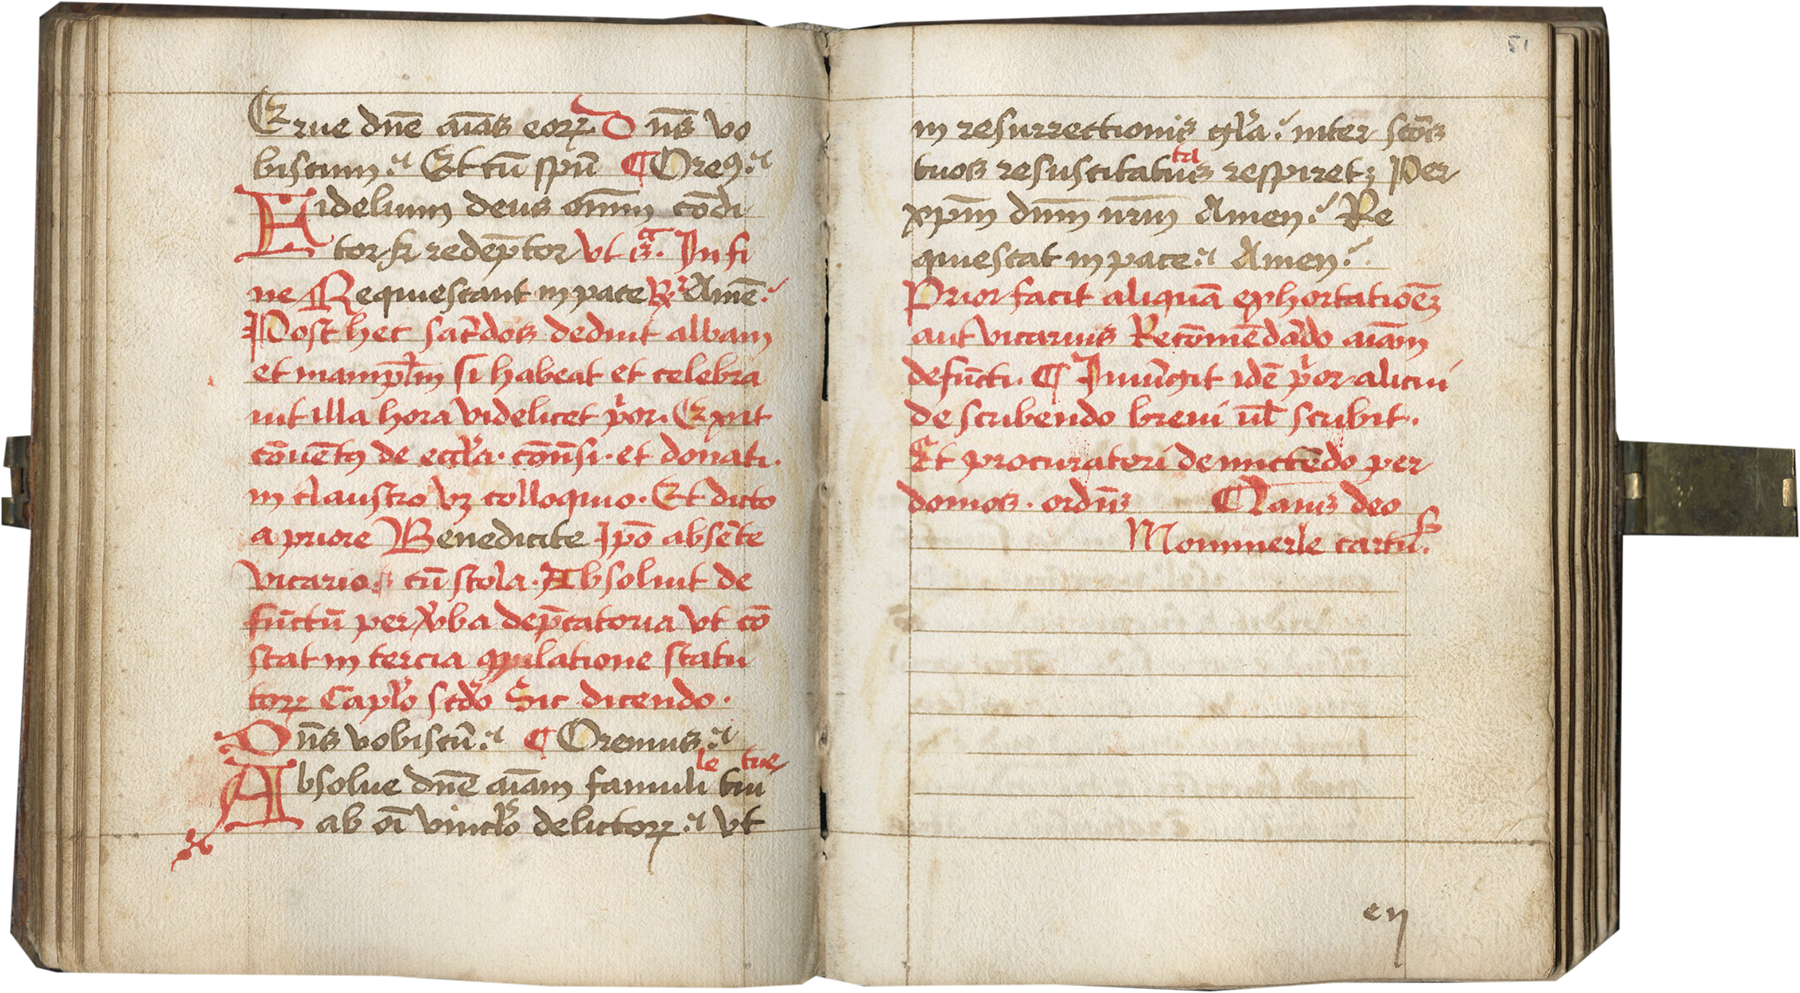 Erue dn̄e aīas eoꝝ. D n̄s vo
biscum. Et cū spū ¶ Orem9.
Fidelium deus om̄m cōdi
tor ⁊ redēptor vt sᵃ. In fi
ne Requiescant in pace ℞ Amē.
Post hec sac̄dos deduit albam
et manip̄lm si habeat et celebra
uit illa hora videlicet p̄or. Exuit
cōuēt9 de eccl̄a. cōusi. et donati.
in claustro vꝫ colloquio. Et dicto
a priore Benedicite Ipō absēte
vicario. cū stola. Absoluit de
fūctū per v̄ba dep̄catoria vt cō
stat in tercia 9pilatione statu
toꝝ Caplo scd̄o Sic dicendo.
Dn̄s vobiscū. ¶ Oremus.
le tue
Absolue dn̄e aīam famuli tui
ab oī vinclo delictoꝝ. vt
51
in resurrectionis gl̄a. inter sc̄os
ta
tuos resuscitatus respiret ꝫ Per
xp̄m dn̄m nr̄m Amen. Re
quiescat in pace. Amen.
Prior facit aliquā exhortatiōeꝫ
aut vicarius Recōmēdādo aīam
defūcti. ¶ Iniūgit idē p̄or alicui
de scribendo breui ul̄ scribit.
Et procuratori de mictēdo per
domos. ordīs ¶ Laus deo
Mommerle cartu.
en